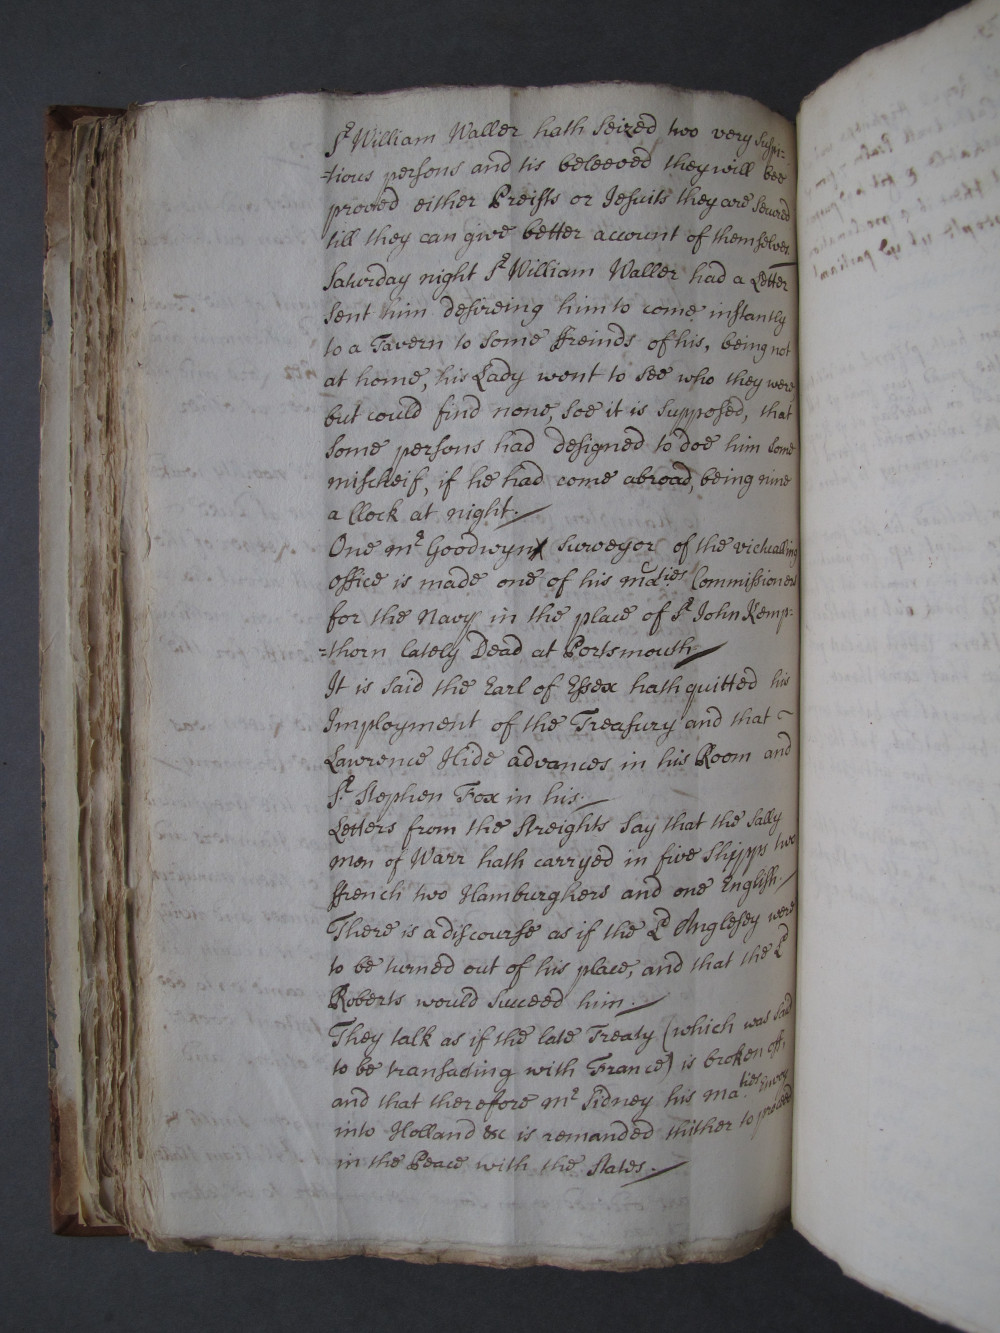 Sr William Waller hath Seized two very Suspi-
-tious persons and tis beleeved they will bee
proved either Preists or Jesuits they are Secured
till they can give better account of themselves
Saturday night Sr William Waller had a Letter
Sent him desireing him to come instantly
to a Tavern to Some ffreinds of his, being not
at home, his Lady went to See who they were
but could find none, Soe it is Supposed, that
Some persons had designed to doe him Some
mischeif, if he had come abroad, being nine
a Clock at night.
One mr Goodwyn Surveyor of the victualling
office is made one of his maties Commissioners
for the Navy in the place of Sr John Kemp-
-thorn lately Dead at Portsmouth
It is Said the Earl of Essex hath quitted his
Imployment of the Treasury and that ~
Lawrence Hide advances in his Room and
Sr Stephen Fox in his.
Letters from the Streights Say that the Sally
men of Warr hath carryed in five Shipps two
ffrench two Hamburghers and one English.
There is a discourse as if the Ld Anglesey were
to be turned out of his place, and that the Ld
Roberts would Succeed him.
They talk as if the late Treaty (which was Said
to be transacting with France) is broken off,
and that therefore mr Sidney his maties Envoy
into Holland &c is remanded thither to proceed
in the Peace with the States.